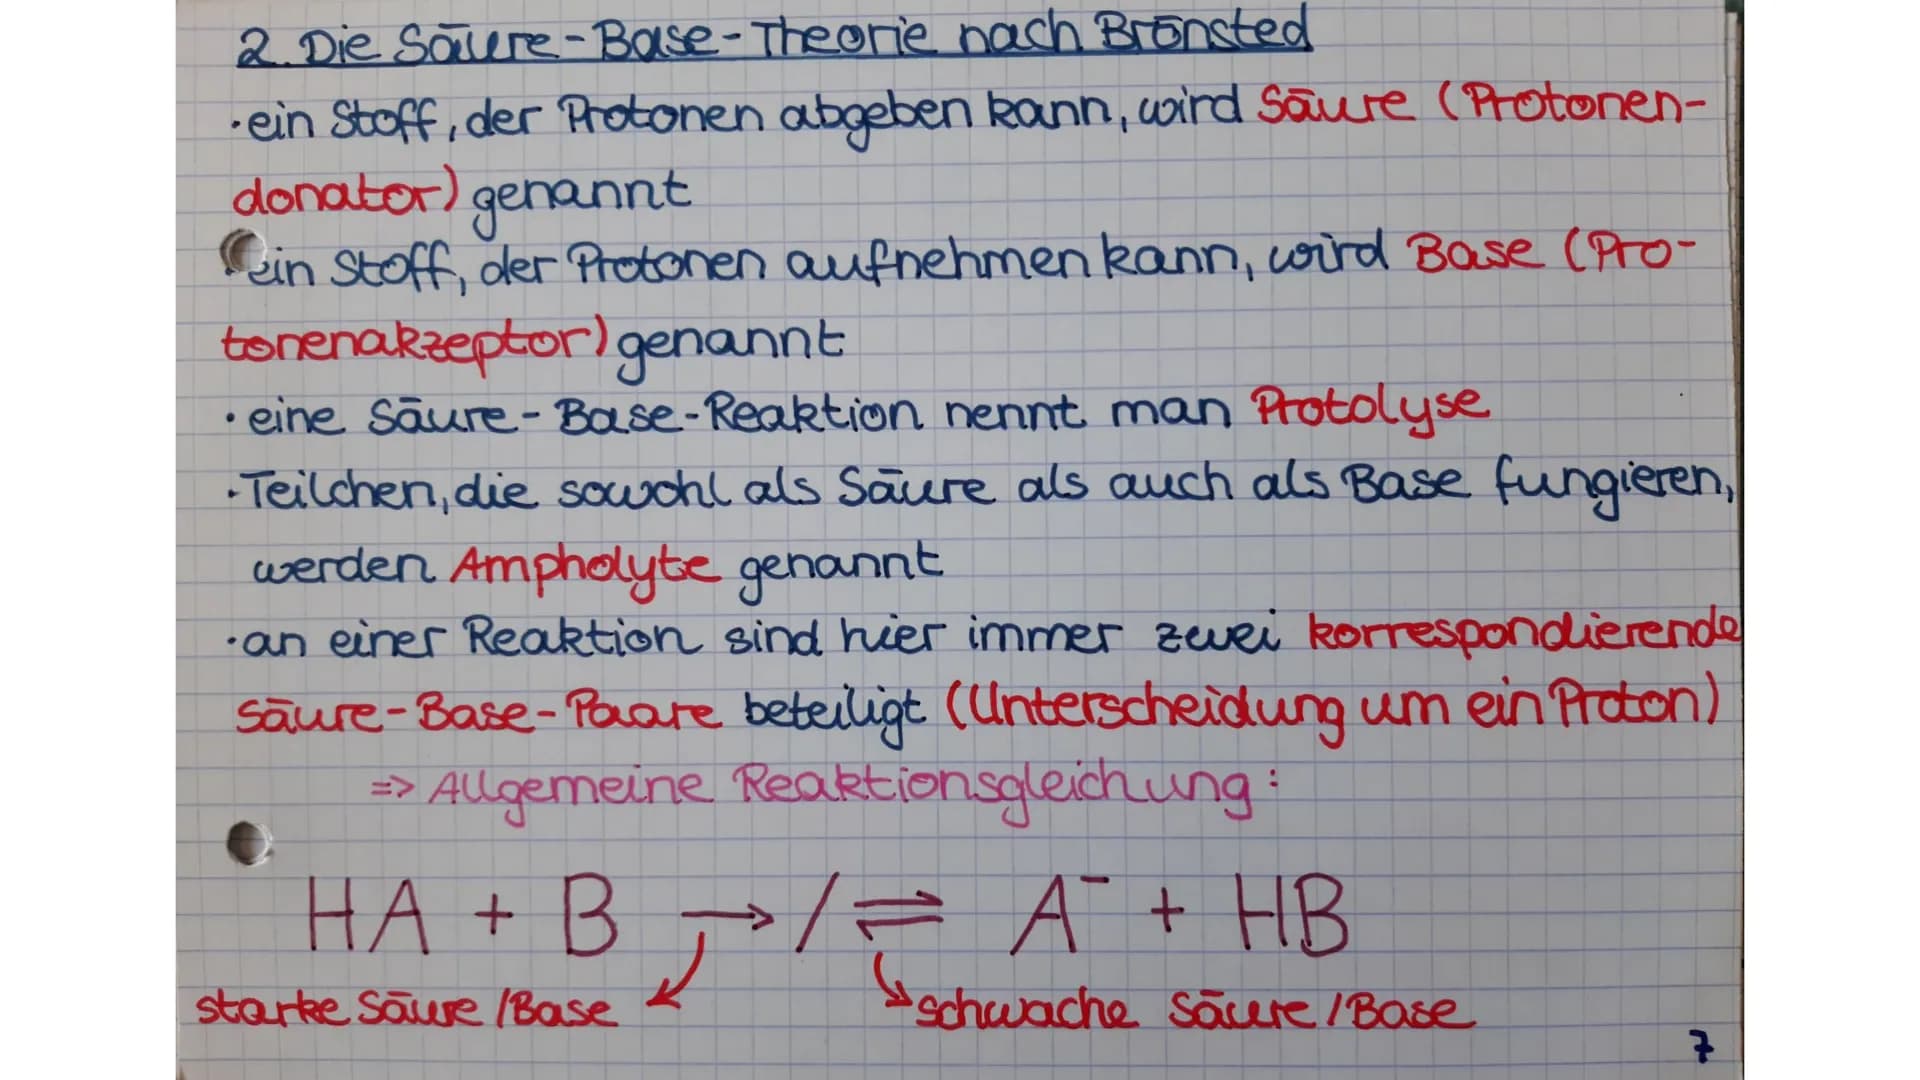 2. Die Säure-Base-Theorie nach Brönsted
·ein Stoff, der Protonen abgeben kann, wird Säure (Protonen-
donator) genannt
·ein Stoff, der Protonen aufnehmen kann, wird Base (Pro-
tonenakzeptor) genannt
·eine Säure-Base-Reaktion nennt man Protolyse
·Teilchen, die sowohl als Säure als auch als Base fungieren,
werden Ampholyte genannt
·an einer Reaktion sind hier immer zwei korrespondierende
Säure-Base-Paare beteiligt (Unterscheidung um ein Proton)
=> Allgemeine Reaktionsgleichung:
HA + B → / ⇌ A⁻ + HB
starke Säure/Base
schwache Säure/Base
7